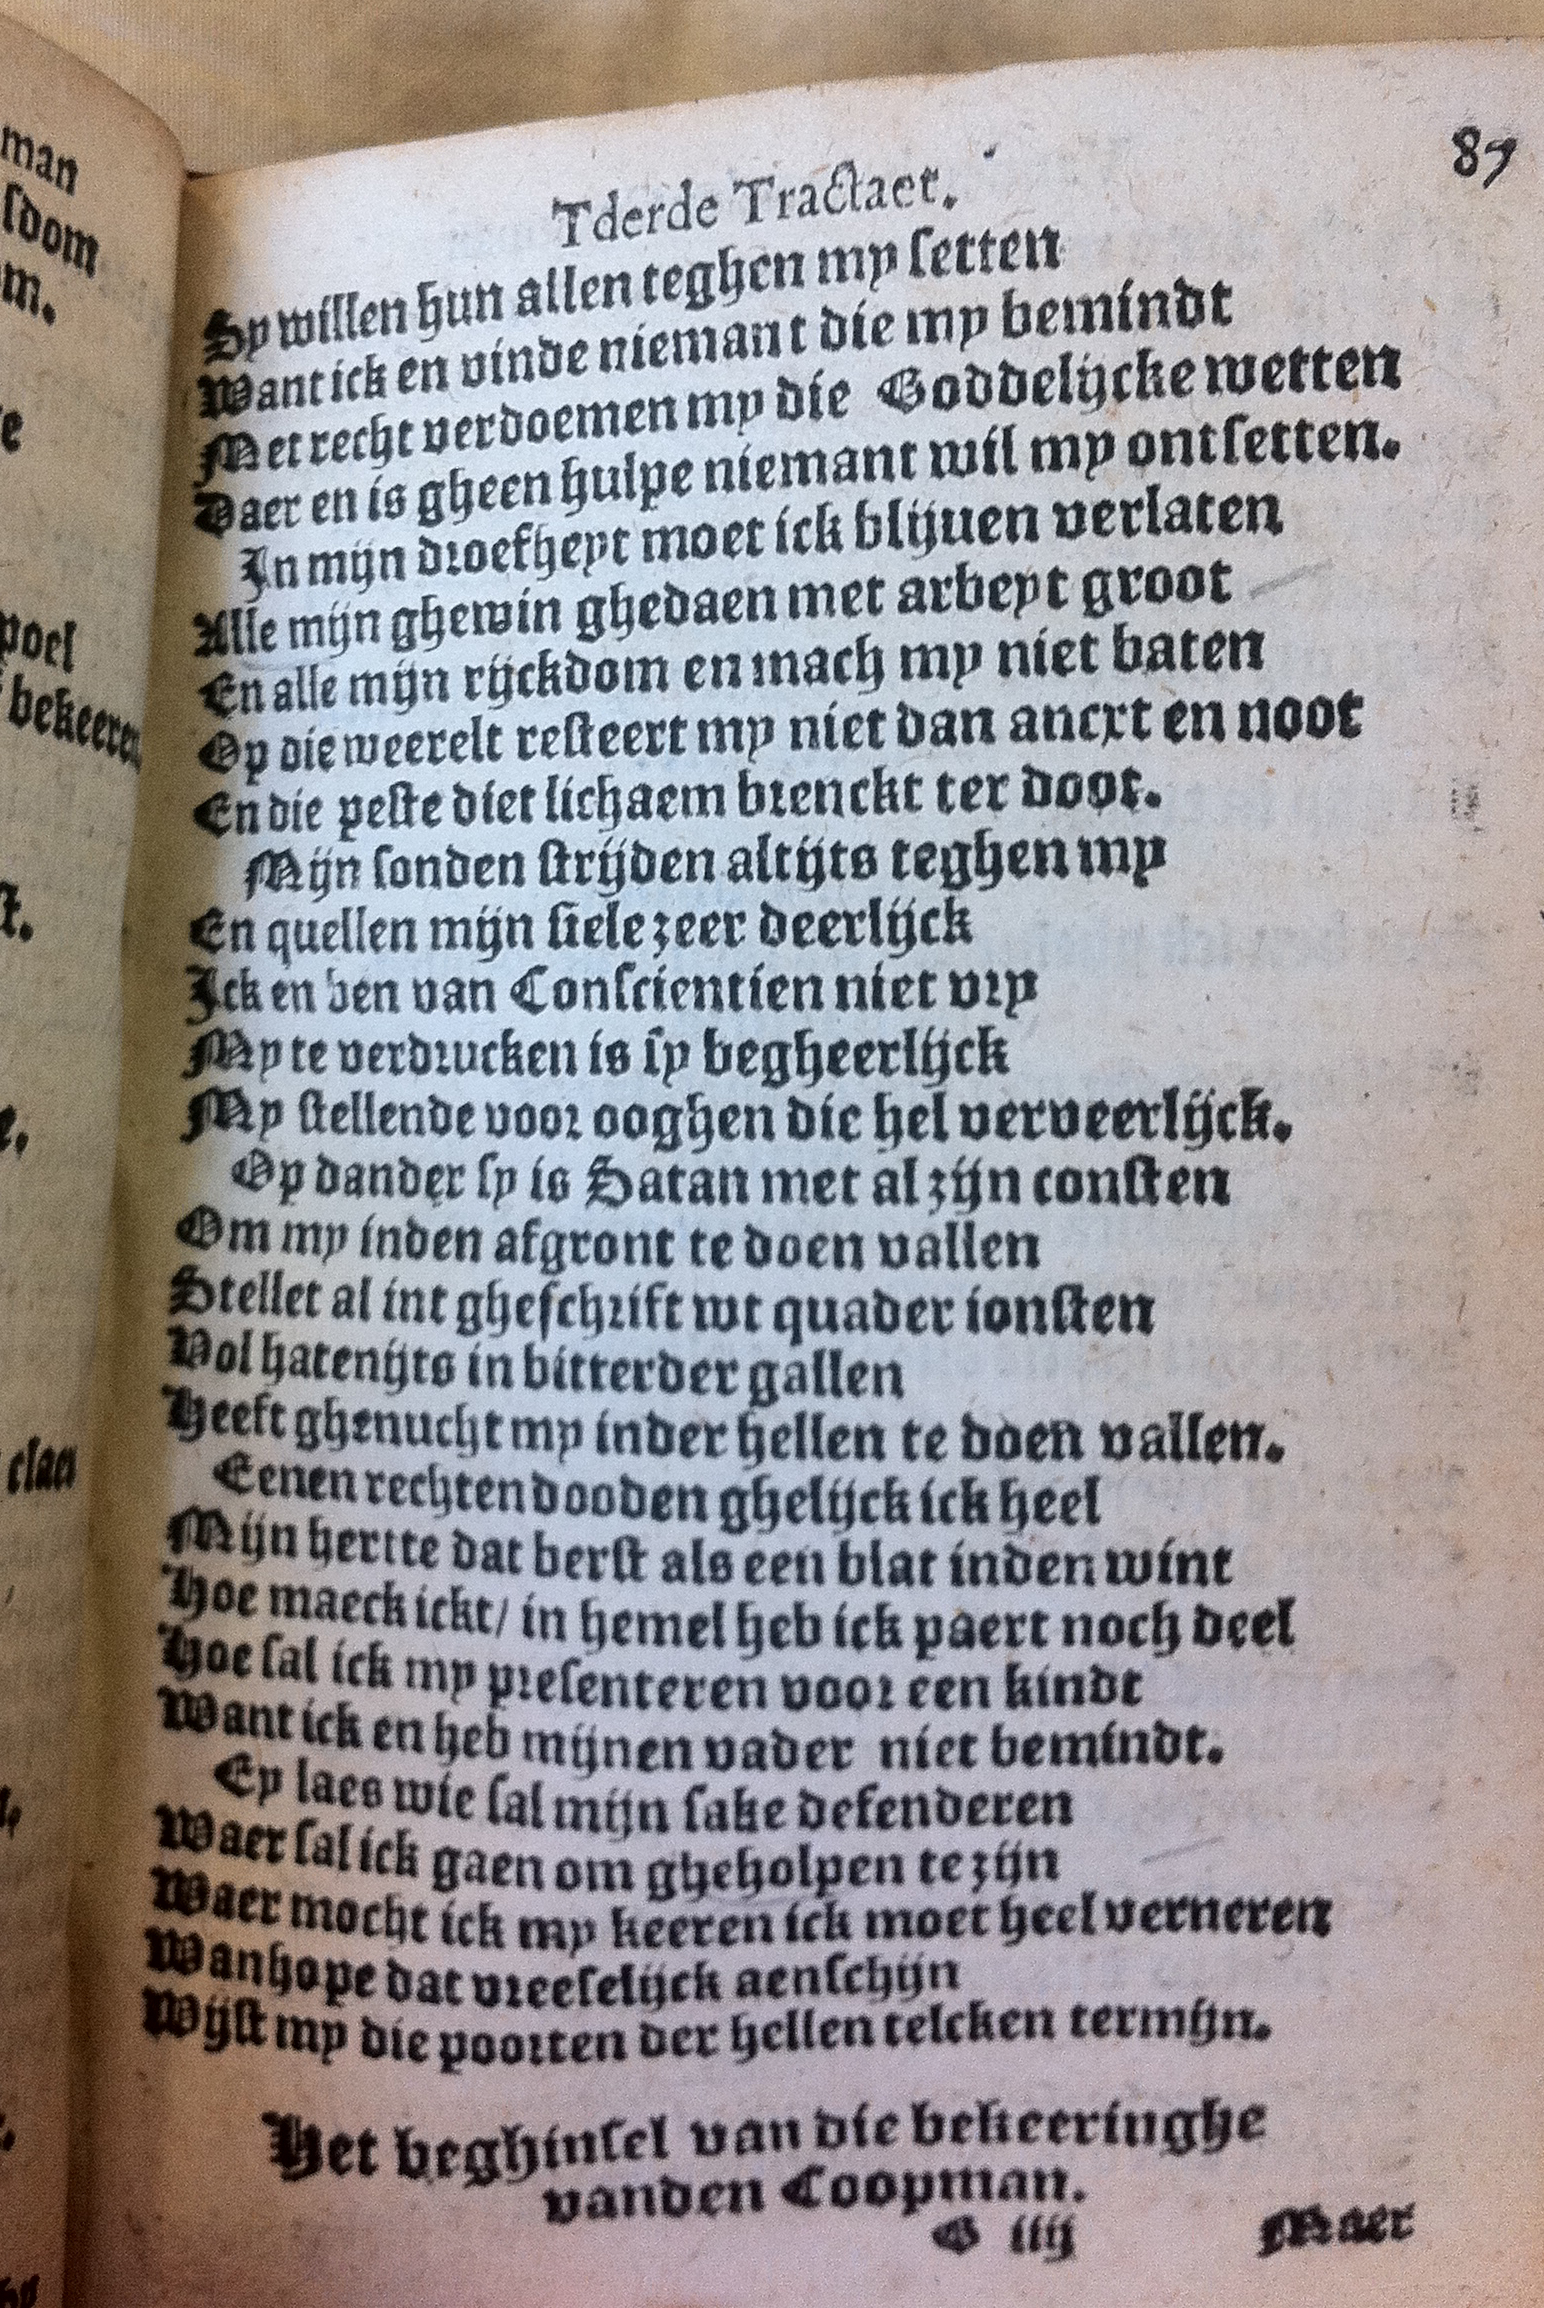 87
Tderde Tractaet.
Sy willen hun allen teghen my setten
Want ick en vinde niemant die my bemindt
Met recht verdoemen my die Goddelijcke wetten
Daer en is gheen hulpe niemant wil my ontsetten.
In mijn droefheyt moet ick blijuen verlaten
Alle mijn ghewin ghedaen met arbeyt groot
En alle mijn rijckdom en mach my niet baten
Op die weerelt resteert my niet dan ancxt en noot
En die peste diet lichaem brenckt ter doot.
Mijn sonden strijden altijts teghen my
En quellen mijn siele zeer deerlijck
Ick en ben van Conscientien niet vry
My te verdrucken is sy begheerlijck
My stellende voor ooghen die hel verveerlijck.
Op dander sy is Satan met al zijn consten
Om my inden afgront te doen vallen
Stellet al int gheschrift wt quader ionsten
Vol hatenijts in bitterder gallen
Heeft ghenucht my inder hellen te doen vallen.
Eenen rechten dooden ghelijck ick heel
Mijn hertte dat berst als een blat inden wint
Hoe maeck ickt/ in hemel heb ick paert noch deel
Hoe sal ick my presenteren voor een kindt
Want ick en heb mijnen vader niet bemindt.
Ey laes wie sal mijn sake defenderen
Waer sal ick gaen om gheholpen te zijn
Waer mocht ick my keeren ick moet heel verneren
Wanhope dat vreeselijck aenschijn
Wijst my die poorten der hellen telcken termijn.
Het beghinsel van die bekeeringhe
vanden Coopman.
G iiij Maer
man
sdom
m.
poel
bekeeren